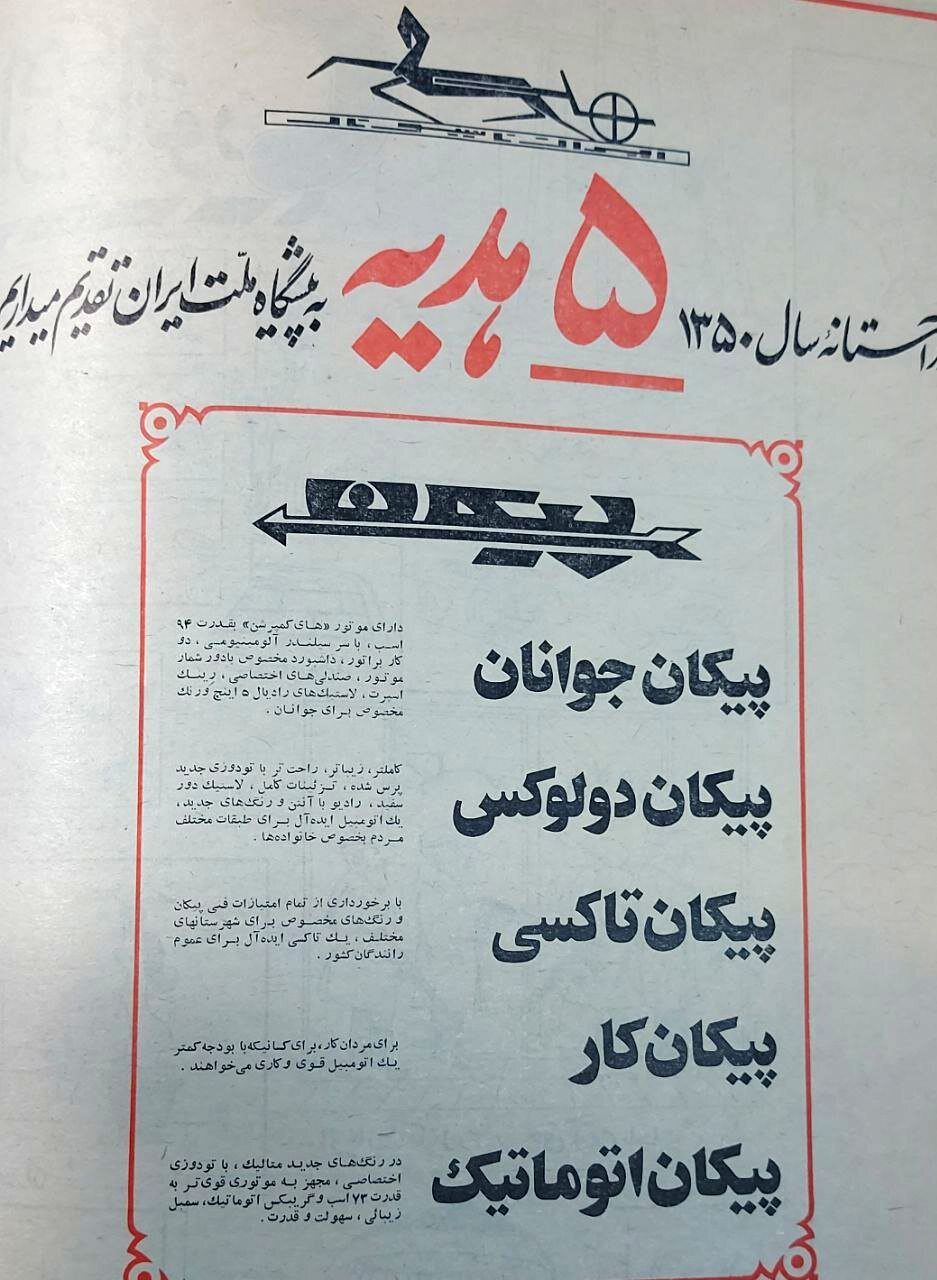 ایران ناسیونال
در آستانهٔ سال ۱۳۵۰ ۵ هدیه به پیشگاه ملّت ایران تقدیم میداریم
پیکان
پیکان جوانان
دارای موتور «های کمپرشن» بقدرت ۹۴
اسب، با سر سیلندر آلومینیومی، دو
کاربراتور، داشبورد مخصوص با دور شمار
موتور، صندلی‌های اختصاصی، رینگ
اسپرت، لاستیک‌های رادیال ۵ اینچ و رنگ
مخصوص برای جوانان.
پیکان دولوکس
کاملتر، زیباتر، راحت تر با تودوزی جدید
پرس شده، تزئینات کامل، لاستیک دور
سفید، رادیو با آنتن و رنگ‌های جدید،
یک اتومبیل ایده‌آل برای طبقات مختلف
مردم بخصوص خانواده‌ها.
پیکان تاکسی
با برخورداری از تمام امتیازات فنی پیکان
و رنگ‌های مخصوص برای شهرستانهای
مختلف، یک تاکسی ایده‌آل برای عموم
رانندگان کشور.
پیکان کار
برای مردان کار، برای کسانیکه با بودجه کمتر
یک اتومبیل قوی و کاری می‌خواهند.
پیکان اتوماتیک
در رنگ‌های جدید متالیک، با تودوزی
اختصاصی، مجهز به موتوری قوی‌تر به
قدرت ۷۳ اسب و گریبکس اتوماتیک، سمبل
زیبائی، سهولت و قدرت.